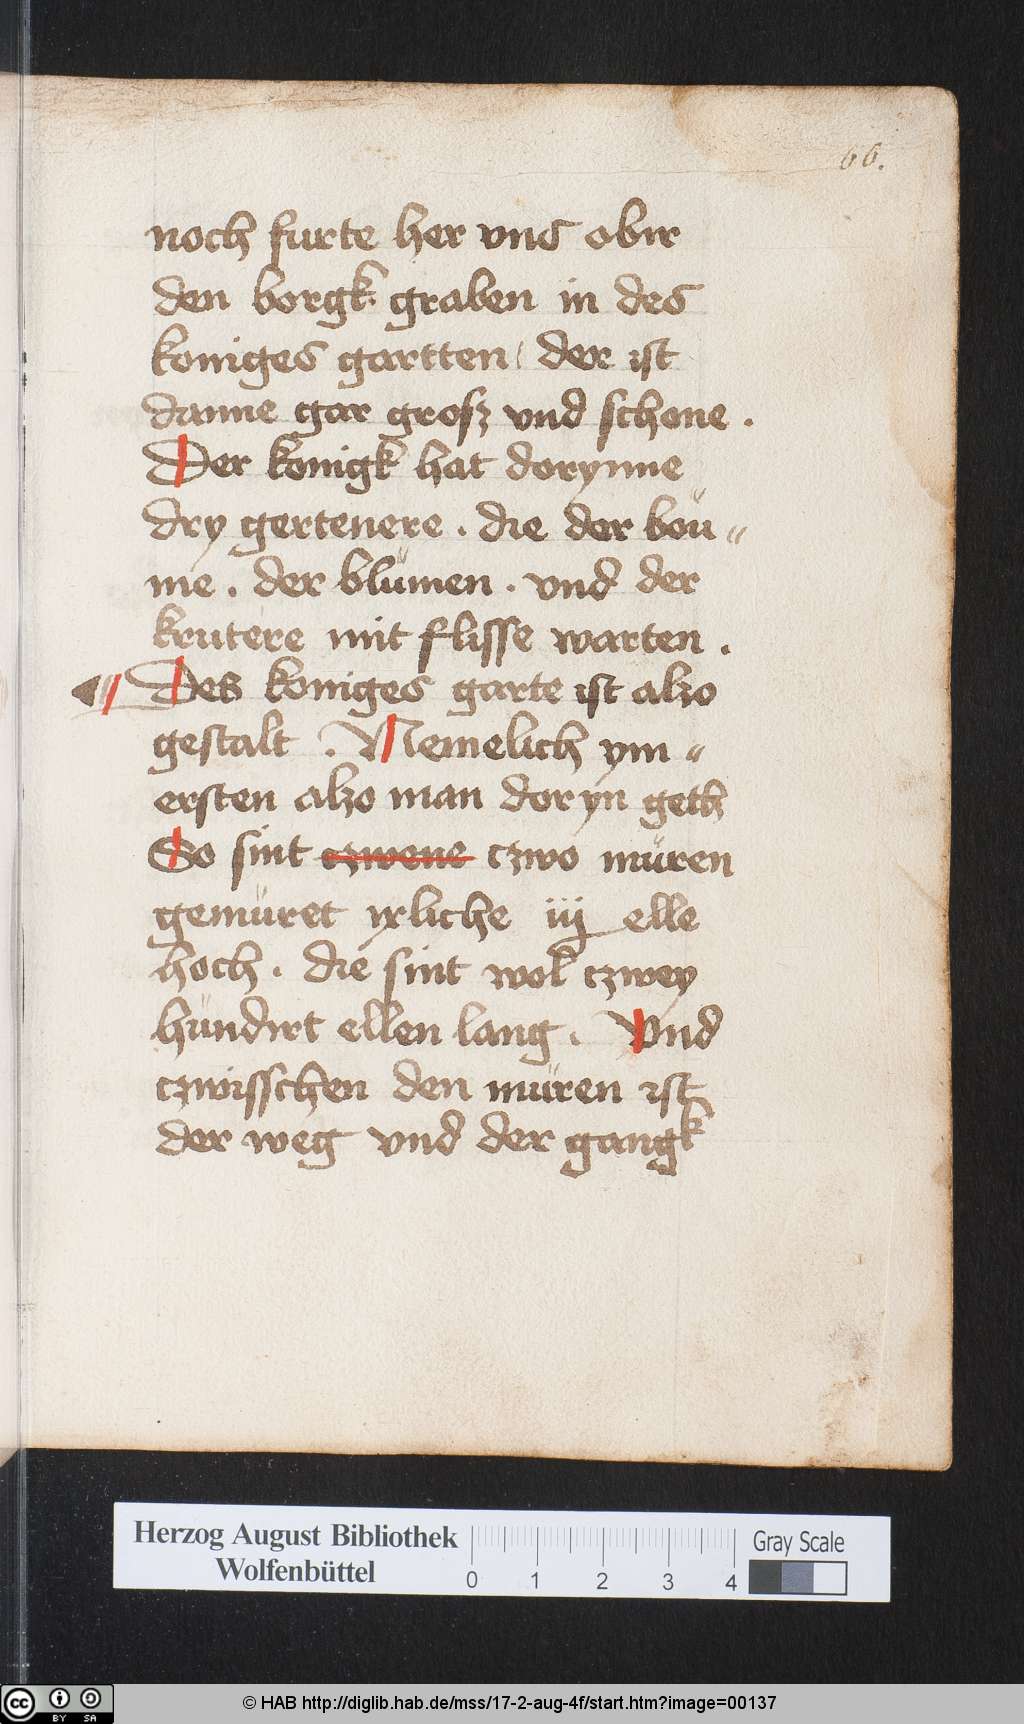 66.
noch furte her vns obir
den borgk graben in des
koniges gartten der ist
danne gar grosz vnd schone .
Der konigk hat dorynne
dry gertenere . die der böu〃
me . der blümen . vnd der
krutere mit flisse warten .
Des koniges garte ist alzo
gestalt . Nemelich ym〃
ersten alzo man doryn geth
So sint czwene czwo müren
gemüret irliche iij elle
hoch . die sint wol czwey
hündirt ellen lang . Vnd
czwisschen den müren ist
der weg vnd der gangk
Herzog August Bibliothek
Wolfenbüttel
0 1 2 3 4
Gray Scale
cc BY SA
© HAB http://diglib.hab.de/mss/17-2-aug-4f/start.htm?image=00137